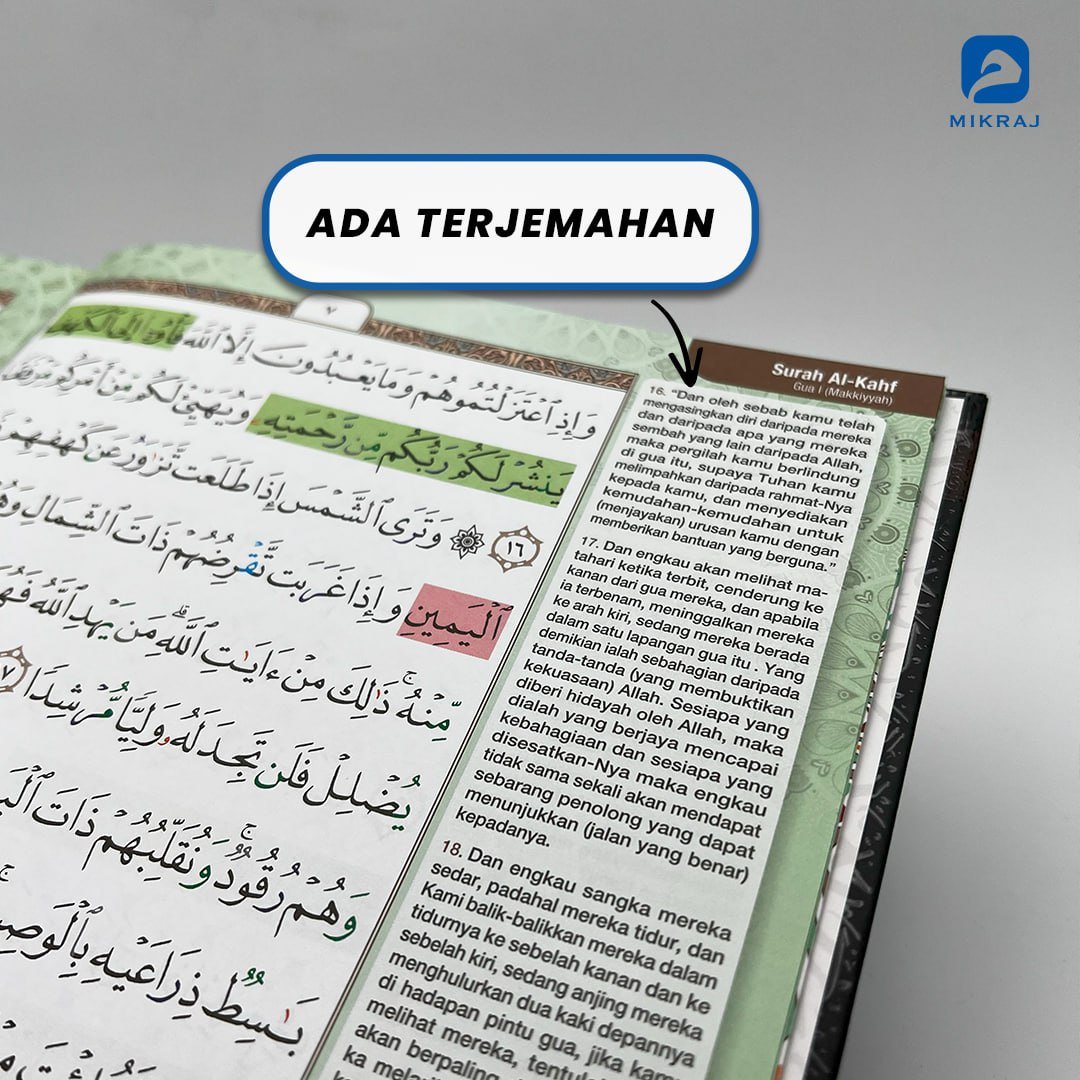 MIKRAJ
ADA TERJEMAHAN
٧
وَإِذِ ٱعْتَزَلْتُمُوهُمْ وَمَا يَعْبُدُونَ إِلَّا ٱللَّهَ فَأْوُۥٓا۟ إِلَى ٱلْكَهْفِ
يَنشُرْ لَكُمْ رَبُّكُم مِّن رَّحْمَتِهِۦ وَيُهَيِّئْ لَكُم مِّنْ أَمْرِكُم مِّرْفَقًا
١٦ ۞ وَتَرَى ٱلشَّمْسَ إِذَا طَلَعَت تَّزَٰوَرُ عَن كَهْفِهِمْ
ٱلْيَمِينِ وَإِذَا غَرَبَت تَّقْرِضُهُمْ ذَاتَ ٱلشِّمَالِ
مِّنْهُ ۚ ذَٰلِكَ مِنْ ءَايَٰتِ ٱللَّهِ ۗ مَن يَهْدِ ٱللَّهُ
يُضْلِلْ فَلَن تَجِدَ لَهُۥ وَلِيًّا مُّرْشِدًا
وَهُمْ رُقُودٌ ۚ وَنُقَلِّبُهُمْ ذَاتَ
بَٰسِطٌ ذِرَاعَيْهِ
Surah Al-Kahf
Gua I (Makkiyyah)
16. “Dan oleh sebab kamu telah
mengasingkan diri daripada mereka
dan daripada apa yang mereka
sembah yang lain daripada Allah,
maka pergilah kamu berlindung
di gua itu, supaya Tuhan kamu
melimpahkan daripada rahmat-Nya
kepada kamu, dan menyediakan
kemudahan-kemudahan untuk
(menjayakan) urusan kamu dengan
memberikan bantuan yang berguna.”
17. Dan engkau akan melihat ma-
tahari ketika terbit, cenderung ke
kanan dari gua mereka, dan apabila
ia terbenam, meninggalkan mereka
ke arah kiri, sedang mereka berada
dalam satu lapangan gua itu . Yang
demikian ialah sebahagian daripada
tanda-tanda (yang membuktikan
kekuasaan) Allah. Sesiapa yang
diberi hidayah oleh Allah, maka
dialah yang berjaya mencapai
kebahagiaan dan sesiapa yang
disesatkan-Nya maka engkau
tidak sama sekali akan mendapat
sebarang penolong yang dapat
menunjukkan (jalan yang benar)
kepadanya.
18. Dan engkau sangka mereka
sedar, padahal mereka tidur, dan
Kami balik-balikkan mereka dalam
tidurnya ke sebelah kanan dan ke
sebelah kiri, sedang anjing mereka
menghulurkan dua kaki depannya
di hadapan pintu gua, jika kamu
melihat mereka,
akan berpaling